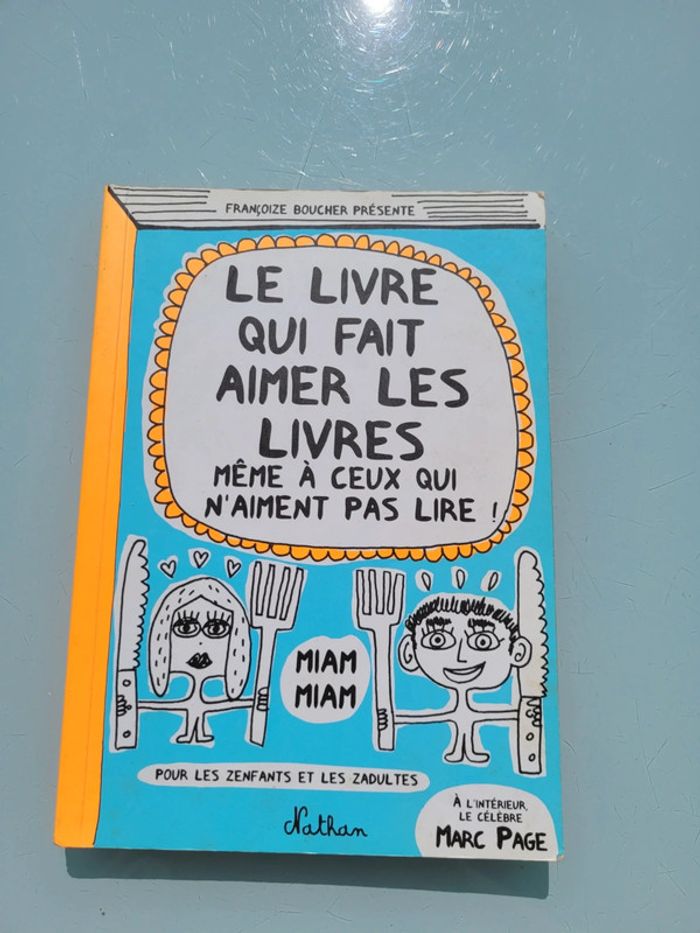 FRANÇOIZE BOUCHER PRÉSENTE
LE LIVRE
QUI FAIT
AIMER LES
LIVRES
MÊME À CEUX QUI
N'AIMENT PAS LIRE !
MIAM
MIAM
POUR LES ZENFANTS ET LES ZADULTES
Nathan
À L'INTÉRIEUR,
LE CÉLÈBRE
MARC PAGE